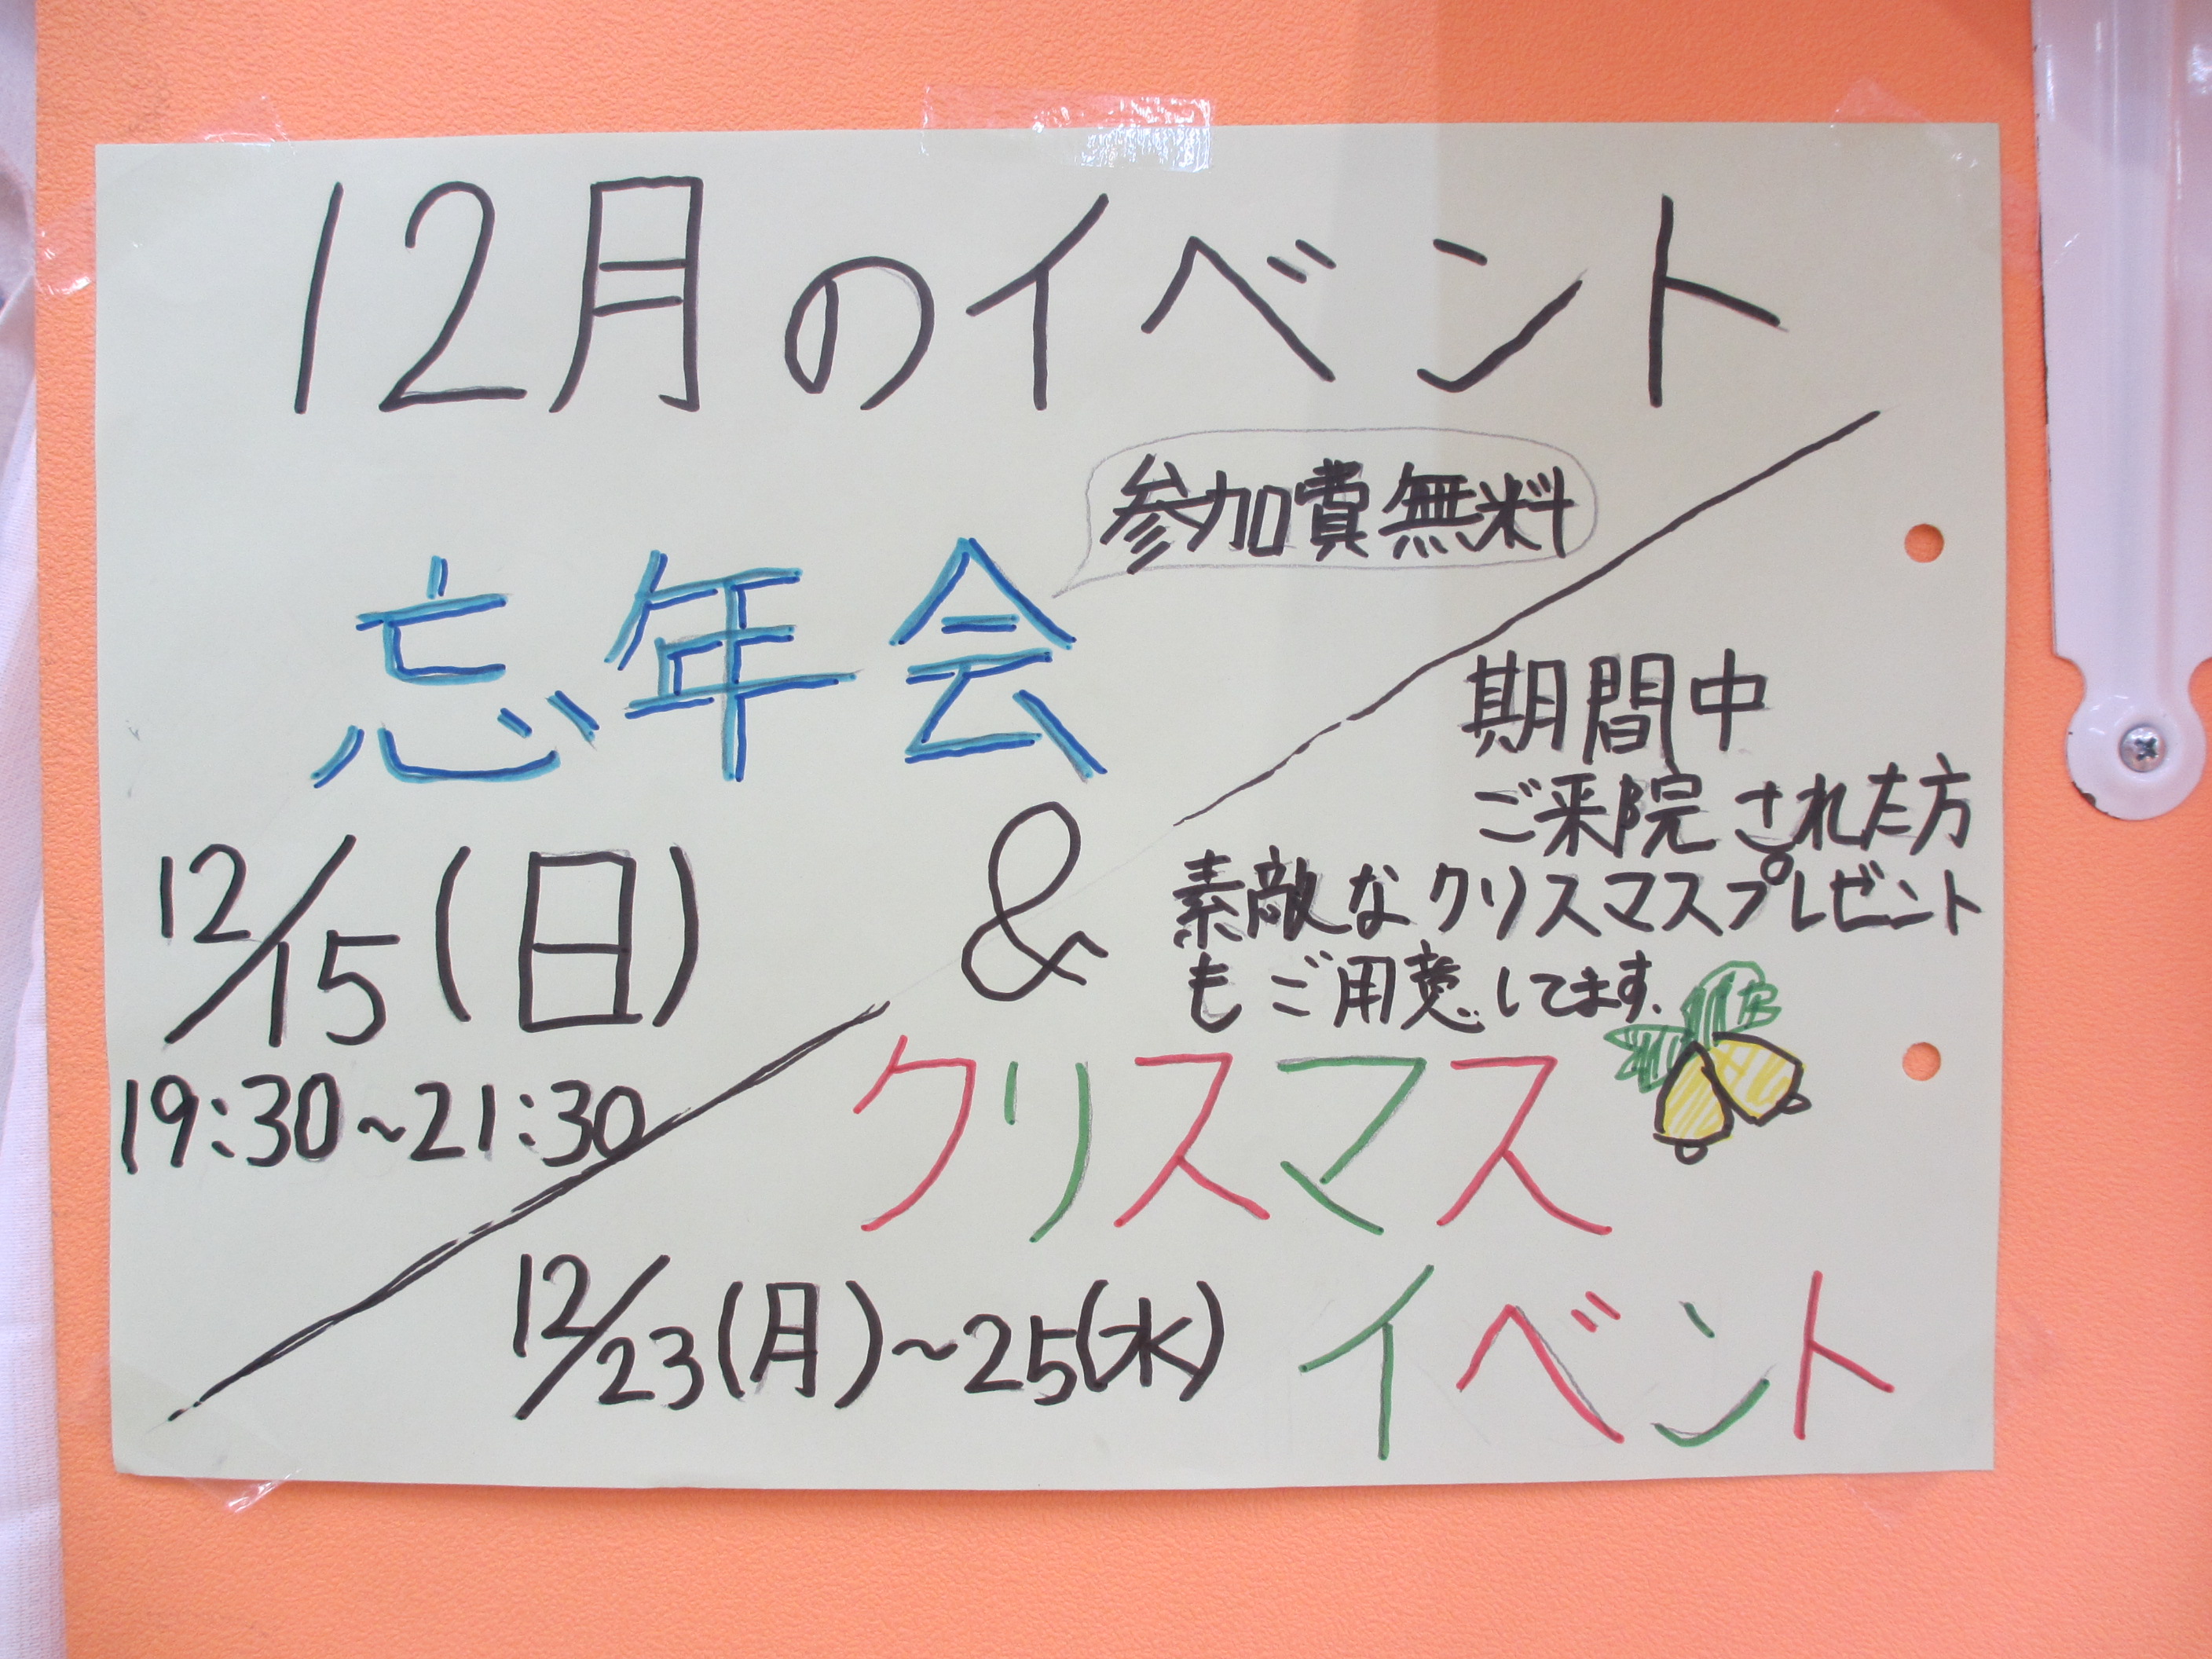 12月のイベント
参加賞無料
忘年会
12/15(日)
19:30~21:30
&
期間中
ご来院された方
素敵なクリスマスプレゼント
もご用意してます.
クリスマス
イベント
12/23(月)~25(水)